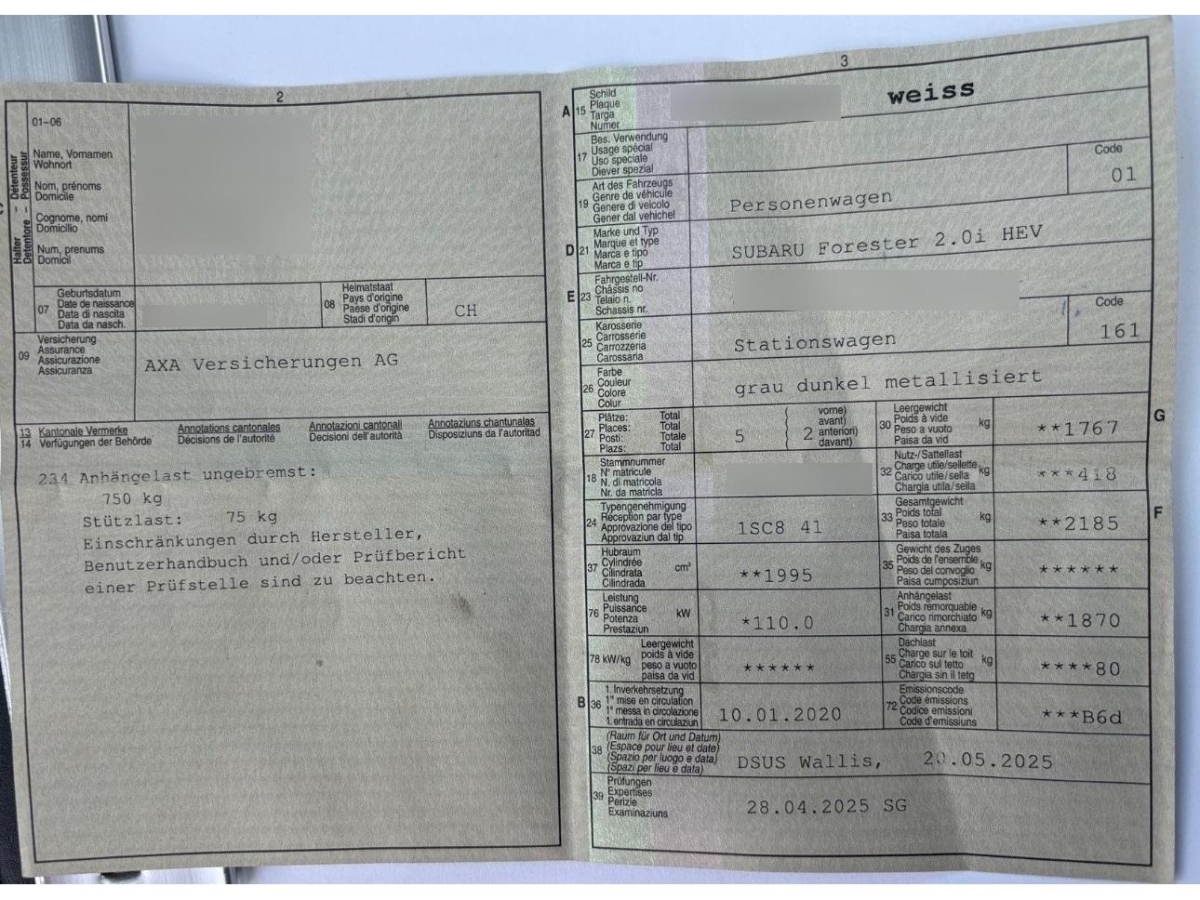 2
01-06
Halter – Détenteur
Detentore – Possessur
Name, Vornamen
Wohnort
Nom, prénoms
Domicile
Cognome, nomi
Domicilio
Num, prenums
Domicil
07
Geburtsdatum
Date de naissance
Data di nascita
Data da nasch.
08
Heimatstaat
Pays d'origine
Paese d'origine
Stadi d'origin
CH
09
Versicherung
Assurance
Assicurazione
Assicuranza
AXA Versicherungen AG
13 Kantonale Vermerke Annotations cantonales Annotazioni cantonali Annotaziuns chantunalas
14 Verfügungen der Behörde Décisions de l'autorité Decisioni dell'autorità Disposiziuns da l'autoritad
234 Anhängelast ungebremst:
750 kg
Stützlast: 75 kg
Einschränkungen durch Hersteller,
Benutzerhandbuch und/oder Prüfbericht
einer Prüfstelle sind zu beachten.
3
A 15
Schild
Plaque
Targa
Numer
weiss
17
Bes. Verwendung
Usage spécial
Uso speciale
Diever spezial
19
Art des Fahrzeugs
Genre de véhicule
Genere di veicolo
Gener dal vehichel
Personenwagen
Code
01
D 21
Marke und Typ
Marque et type
Marca e tipo
Marca e tip
SUBARU Forester 2.0i HEV
E 23
Fahrgestell-Nr.
Châssis no
Telaio n.
Schassis nr.
25
Karosserie
Carrosserie
Carrozzeria
Carossaria
Stationswagen
Code
161
26
Farbe
Couleur
Colore
Colur
grau dunkel metallisiert
27
Plätze: Total
Places: Total
Posti: Totale
Plazs: Total
5
2
vorne)
avant)
anteriori)
davant)
30
Leergewicht
Poids à vide
Peso a vuoto
Paisa da vid
kg
**1767
G
18
Stammnummer
N° matricule
N. di matricola
Nr. da matricla
32
Nutz-/Sattellast
Charge utile/sellette
Carico utile/sella
Chargia utila/sella
kg
***418
24
Typengenehmigung
Réception par type
Approvazione del tipo
Approvaziun dal tip
1SC8 41
33
Gesamtgewicht
Poids total
Peso totale
Paisa totala
kg
**2185
F
37
Hubraum
Cylindrée
Cilindrata
Cilindrada
cm³
**1995
35
Gewicht des Zuges
Poids de l'ensemble
Peso del convoglio
Paisa cumposiziun
kg
******
76
Leistung
Puissance
Potenza
Prestaziun
kW
*110.0
31
Anhängelast
Poids remorquable
Carico rimorchiato
Chargia annexa
kg
**1870
78 kW/kg
Leergewicht
poids à vide
peso a vuoto
paisa da vid
******
55
Dachlast
Charge sur le toit
Carico sul tetto
Chargia sin il tetg
kg
****80
B 36
1. Inverkehrsetzung
1re mise en circulation
1a messa in circolazione
1. entrada en circulaziun
10.01.2020
72
Emissionscode
Code émissions
Codice emissioni
Code d'emissiuns
***B6d
38
(Raum für Ort und Datum)
(Espace pour lieu et date)
(Spazio per luogo e data)
(Spazi per lieu e data)
DSUS Wallis, 20.05.2025
39
Prüfungen
Expertises
Perizie
Examinaziuns
28.04.2025 SG